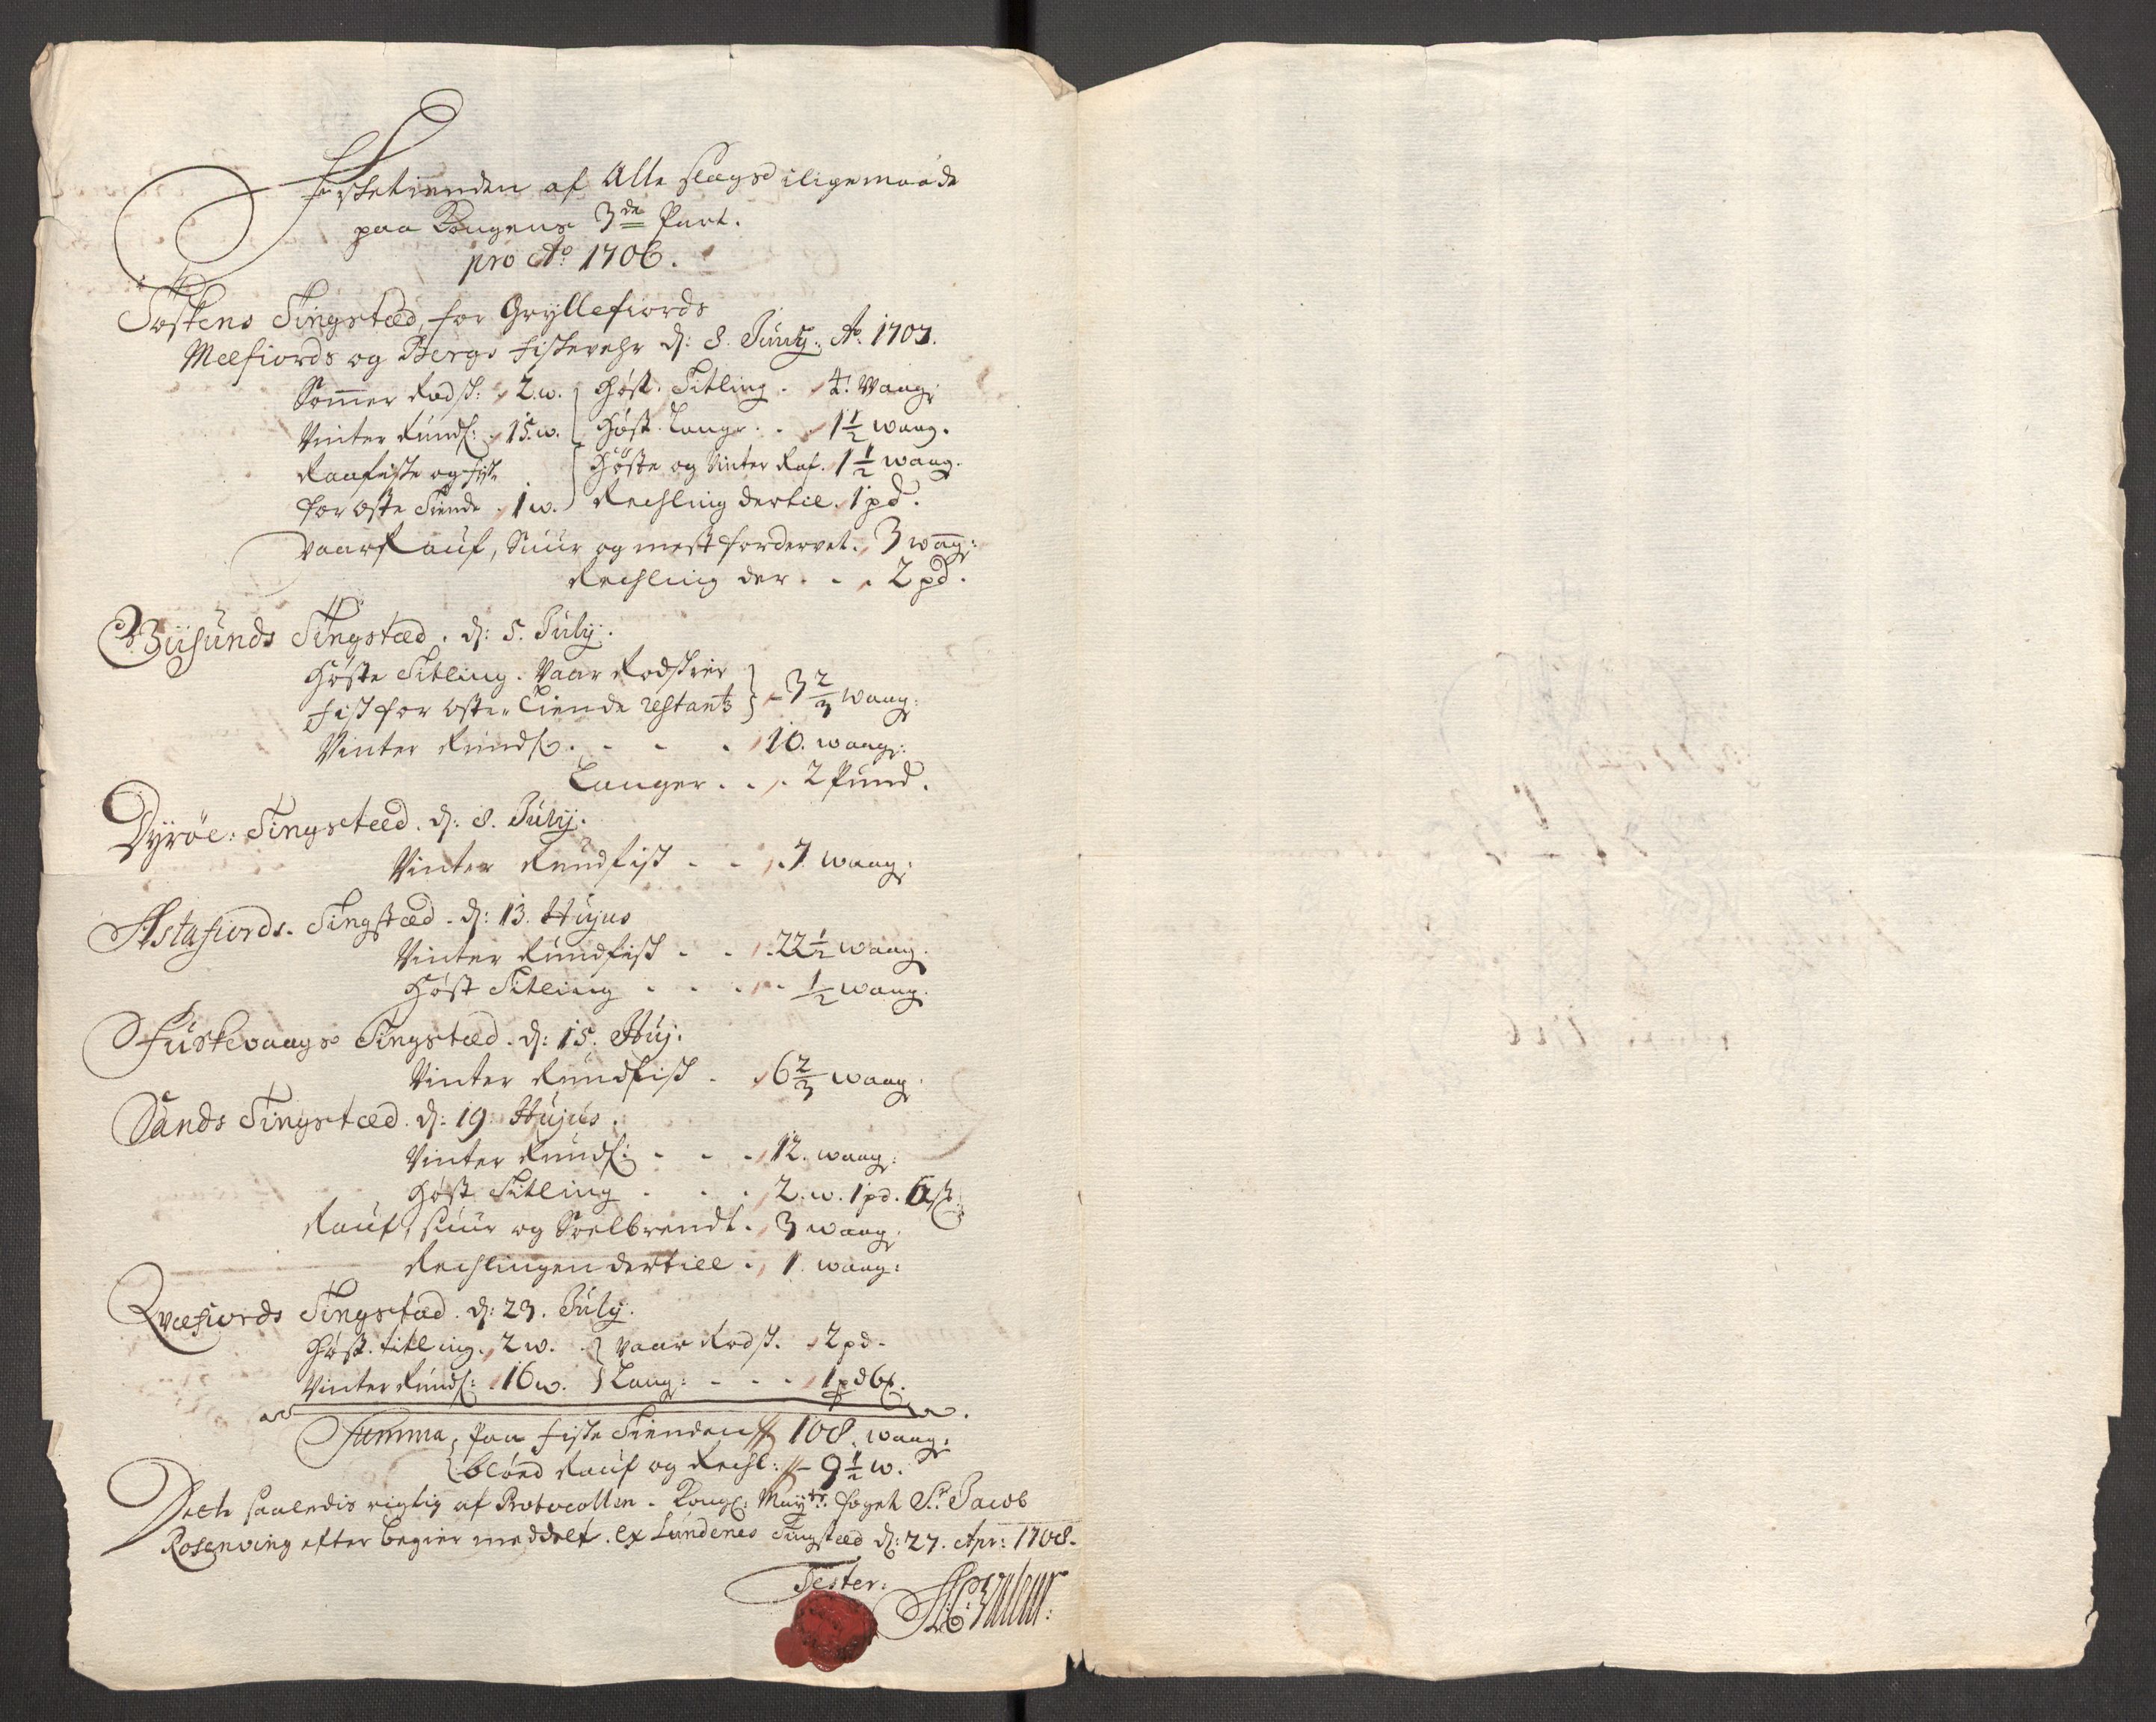 Fisketienden af Alle slags iligemaade
paa Kongens 3de Part.
pro Ao 1706.
Tingstæd, for Gryllefiords
Meefiords og Bergs fiskevehr d: 8. Juny. Ao. 1707.
Sommer Rodsk: 2. w. Høst. Titling. 4. waag:
Vinter Rundf: 15. w. Høst. Lange. 1½ waag.
Raafiske og fisk Høste og Vinter Raf. 1½ waag.
for oste Tiende 1 w. Rechling dertil. 1 pd.
Vaar Rauf, Suur og mest fordervet. 3 waag:
Rechling der. 2 pd.
Giisunds Tingstæd. d: 5. July.
Høste Titling. Vaar Rodskier
fisk for Oste Tiende restantz 3 2/3 waag:
Vinter Rundf. 10. waag:
Langer. 2 Pund.
Dyrøe: Tingstæd. d: 8. July.
Vinter Rundfisk 7. waag:
Astafiords. Tingstæd. d: 13. Hujus
Vinter Rundfisk 22½ waag.
Høst Titling ½ waag.
Fuskevaags Tingstæd. d: 15. Huj.
Vinter Rundfisk 6 2/3 waag:
Sands Tingstæd. d: 19. Hujus.
Vinter Rundf: 12. waag:
Høst Titling 2. w. 1 pd. 6
Rauf, suur og Soelbrendt. 3 waag:
Rechlingen dertill. 1. waag:
Qvæfiords Tingstæd. d: 23. July.
Høst. titling. 2 w. Vaar Rodsk. 2 pd.
Vinter Rundf: 16 w. Lang: 1 pd 6
Summa, paa fiske Tienden 108. waag:
bløed Rauf og Rechl: 9½ w.
Dette saaledis rigtig af Protocollen. Kongl: Mayts: foget Sr Jacob
Rosenving efter begier meddelt. ex Lundenes Tingstæd d: 27. Apr: 1708.
Tester: